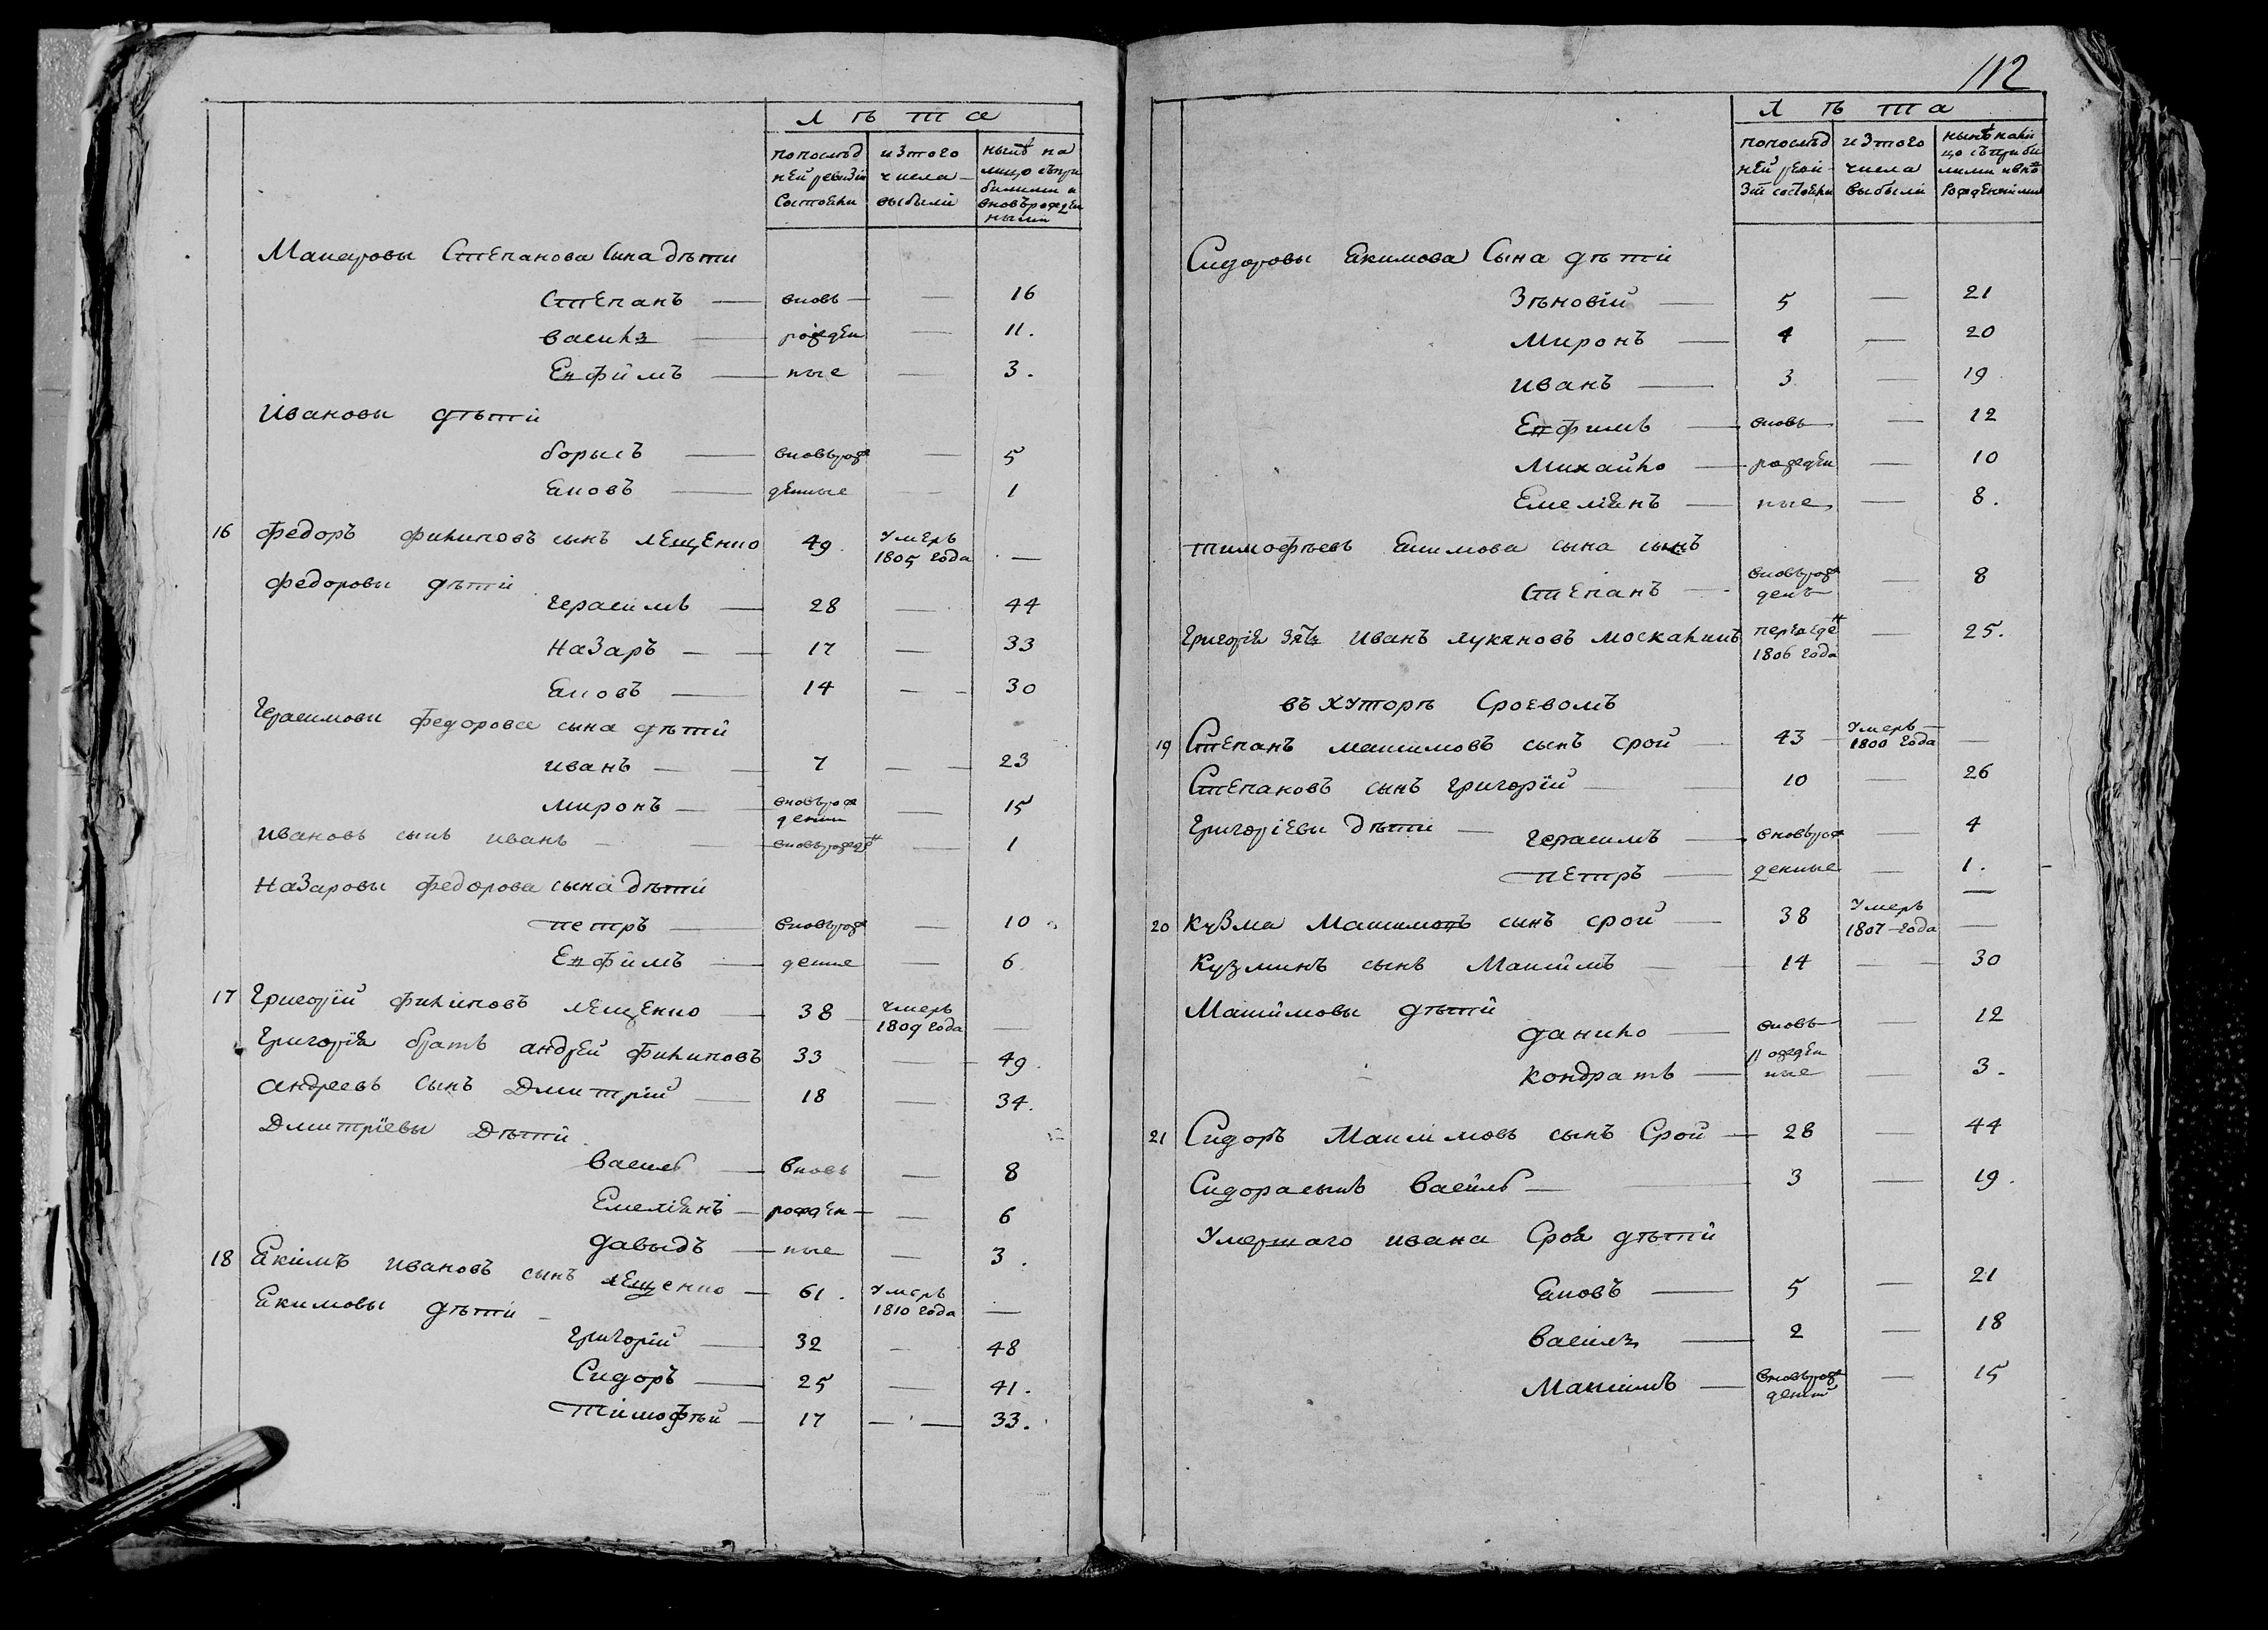 Л ѣ т а
попослѣд изтого нынѣ на
ней ревизіи числа лицо съпри
состояли выбыли былими и
вновърожден
ными
Макаровы Степанова сына дѣти
Степанъ — вновь — — 16
Василь — рожден — 11.
Евфимъ — ные — 3.
Ивановы дѣти
борысъ — вновърож — 5
Яковъ — денные — 1
16 Федоръ Филиповъ сынъ Лещенко 49. Умеръ 1805 года —
Федоровы дѣти
Герасимъ — 28 — 44
Назаръ — — 17 — 33
Яковъ — 14 — 30
Герасимовы Федорова сына дѣти
иванъ — — 7 — 23
миронъ — вновърож денны — 15
ивановъ сынъ иванъ — вновърожден — 1
Назаровы Федорова сына дѣти
петръ — вновърож — 10
Евфимъ — денные — 6.
17 Григорій Филиповъ Лещенко — 38 Умеръ 1809 года —
Григорія братъ андрей Филиповъ 33 — 49.
андреевъ сынъ Дмитрій — 18 — 34.
Дмитріевы Дѣти
Василь — вновь — 8
Емеліянъ — рожден — 6
давыдъ — ные — 3.
18 Якимъ ивановъ сынъ Лещенко — 61. Умеръ 1810 года —
Якимовы дѣти —
Григорій — 32 — 48
Сидоръ — 25 — 41.
Тимофѣй — 17 — 33.
112
Л ѣ т а
попослѣд изтого нынѣ нали
ней реви числа цо съприбы
зіи состояли выбыли лими ивнов
рожденными
Сидоровы Якимова Сына дѣти
Зѣновій — 5 — 21
Миронъ — 4 — 20
иванъ — 3 — 19
Евфимъ — вновь — 12
Михайло — рожден — 10
Емеліянъ — ные — 8.
тимофѣевъ Якимова сына сынъ
Степанъ — вновърож денъ — 8
Григорія зять иванъ лукяновъ москалишъ 1806 года — 25.
въ хуторѣ Сроевомъ
19 Степанъ максимовъ сынъ срой — 43 Умеръ 1800 года —
Степановъ сынъ григорій — 10 — 26
Григоріевы дѣти — Герасимъ — вновърож — 4
петръ — денные — 1.
20 Кузма Максимовъ сынъ срой — 38 Умеръ 1807 года —
Кузминъ сынъ Максимъ — 14 — 30
Максимовы дѣти
данило — вновь — 12
Кондратъ — рожден ные — 3.
21 Сидоръ Максимовъ сынъ Срой — 28 — 44
Сидорасынъ Василь — 3 — 19.
Умершаго ивана Сроя дѣти
Яковъ — 5 — 21
Василь — 2 — 18
Максимъ — вновърож денный — 15